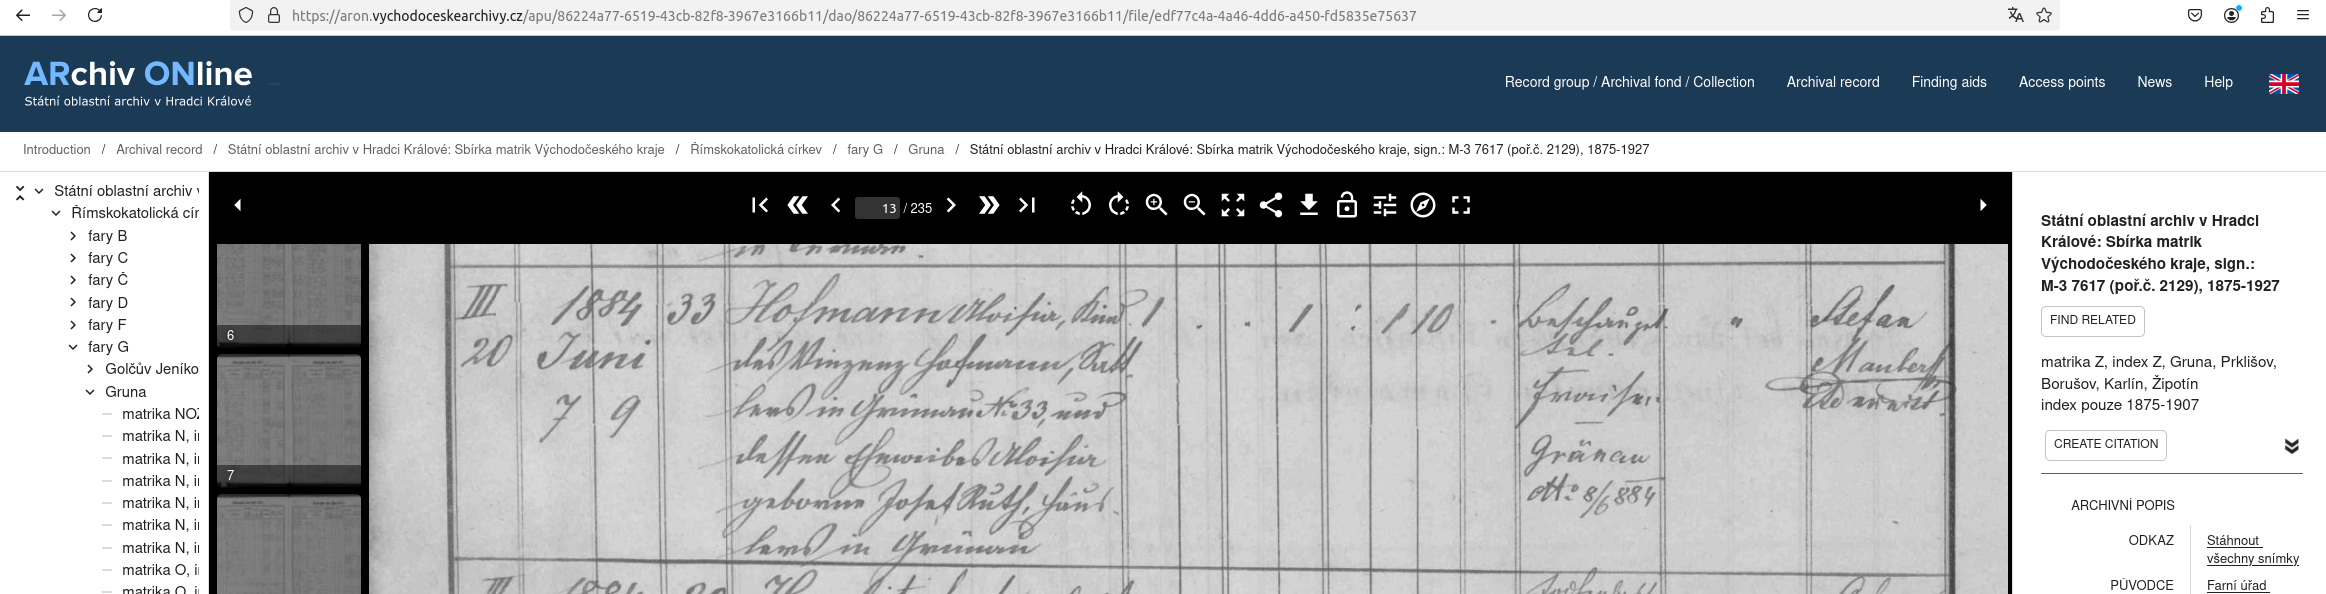 https://aron.vychodoceskearchivy.cz/apu/86224a77-6519-43cb-82f8-3967e3166b11/dao/86224a77-6519-43cb-82f8-3967e3166b11/file/edf77c4a-4a46-4dd6-a450-fd5835e75637
ARchiv ONline
Státní oblastní archiv v Hradci Králové
Record group / Archival fond / Collection
Archival record
Finding aids
Access points
News
Help
Introduction / Archival record / Státní oblastní archiv v Hradci Králové: Sbírka matrik Východočeského kraje / Římskokatolická církev / fary G / Gruna / Státní oblastní archiv v Hradci Králové: Sbírka matrik Východočeského kraje, sign.: M-3 7617 (poř.č. 2129), 1875-1927
Státní oblastní archiv v
Římskokatolická cír
fary B
fary C
fary Č
fary D
fary F
fary G
Golčův Jeníko
Gruna
matrika NOZ
matrika N, i
matrika N, i
matrika N, i
matrika N, i
matrika N, i
matrika N, i
matrika O, i
matrika O, i
13 / 235
6
7
III 1884 33 Hofmann Aloisia, Kind 1 . . 1 : 1 10 . Beschaugzl. " Stefan
20 Juni des Vinzenz Hofmann, Satt
7 9 lers in Grünau No 33, und Fraisen
dessen Eheweibes Aloisia Grünau
geborne Josef Ruth, Häus No 8/6 884
lers in Grünau
III 1884
Státní oblastní archiv v Hradci
Králové: Sbírka matrik
Východočeského kraje, sign.:
M-3 7617 (poř.č. 2129), 1875-1927
FIND RELATED
matrika Z, index Z, Gruna, Prklišov,
Borušov, Karlín, Žipotín
index pouze 1875-1907
CREATE CITATION
ARCHIVNÍ POPIS
ODKAZ Stáhnout
všechny snímky
PŮVODCE Farní úřad